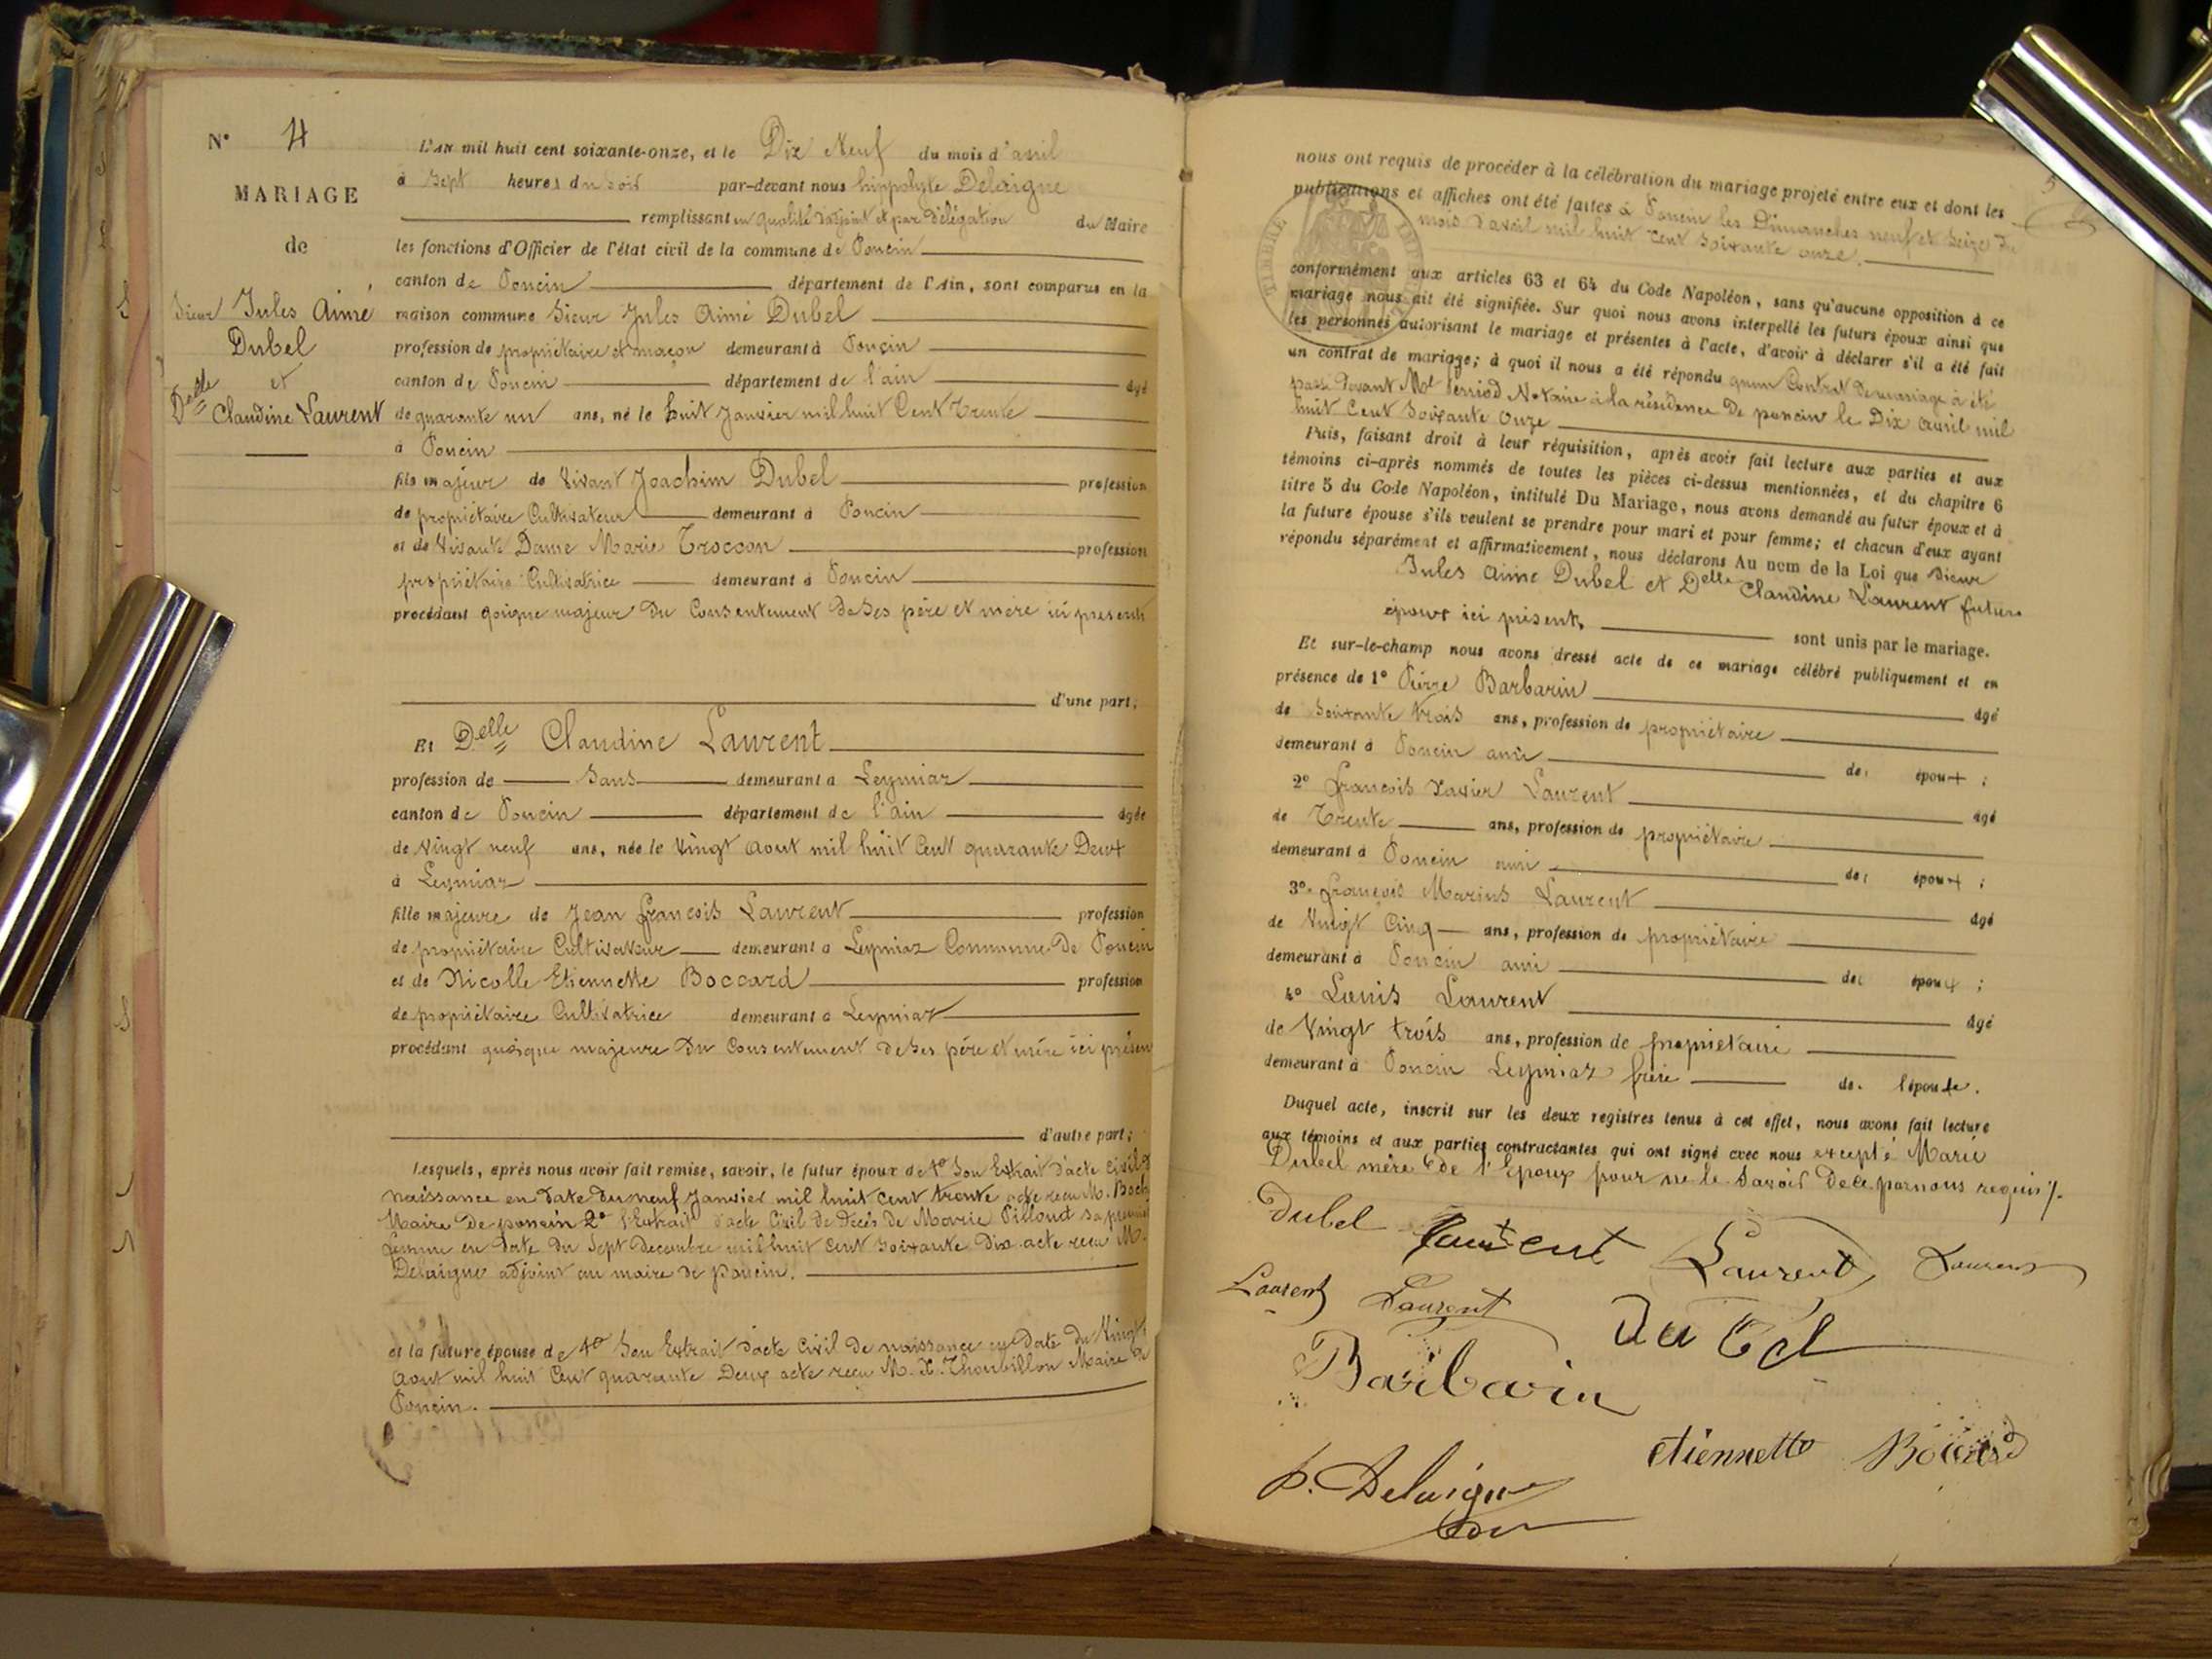 N° 4
MARIAGE
de
Sieur Jules Aimé
Dubel
et
Delle Claudine Laurent
L'an mil huit cent soixante-onze, et le Dix Neuf du mois d'avril
à Sept heures du soir par-devant nous hippolyte Delaigne
remplissant en qualité d'adjoint et par délégation du Maire
les fonctions d'Officier de l'état civil de la commune de Poncin
canton de Poncin département de l'Ain, sont comparus en la
maison commune Sieur Jules Aimé Dubel
profession de propriétaire et maçon demeurant à Poncin
canton de Poncin département de l'ain âgé
de quarante un ans, né le huit Janvier mil huit Cent Trente
à Poncin
fils majeur de vivant Joachim Dubel profession
de propriétaire Cultivateur demeurant à Poncin
et de vivante Dame Marie Troccon profession
propriétaire Cultivatrice demeurant à Poncin
procédant quoique majeur du Consentement de Ses père et mère ici présents
d'une part;
Et Delle Claudine Laurent
profession de Sans demeurant à Leymiaz
canton de Poncin département de l'ain âgée
de vingt neuf ans, née le Vingt aout mil huit Cent quarante Deux
à Leymiaz
fille majeure de Jean françois Laurent profession
de propriétaire Cultivateur demeurant à Leymiaz Commune De Poncin
et de Nicolle Etiennette Boccard profession
de propriétaire Cultivatrice demeurant à Leymiaz
procédant quoique majeure du Consentement de Ses père et mère ici présen
d'autre part;
Lesquels, après nous avoir fait remise, savoir, le futur époux de 1° Son Extrait d'acte civil d
naissance en date du neuf Janvier mil huit cent trente acte reçu M. Boch
Maire de poncin 2° l'Extrait d'acte Civil de Décès de Marie Pilloud sa premiere
femme en Date du Sept Decembre mil huit cent soixante Dix acte reçu M.
Delaigne adjoint au maire de poncin.
et la future épouse de 1° Son Extrait d'acte Civil de naissance en Date du Vingt
Aout mil huit Cent quarante Deux acte reçu M. X. Thoubillon Maire de
Poncin.
nous ont requis de procéder à la célébration du mariage projeté entre eux et dont les
publications et affiches ont été faites à Poncin les Dimanches neuf et Seize du
mois d'avril mil huit cent soixante onze.
conformément aux articles 63 et 64 du Code Napoléon, sans qu'aucune opposition à ce
mariage nous ait été signifiée. Sur quoi nous avons interpellé les futurs époux ainsi que
les personnes autorisant le mariage et présentes à l'acte, d'avoir à déclarer s'il a été fait
un contrat de mariage; à quoi il nous a été répondu qu'un Contrat de mariage à été
passé devant Me Notaire à la résidence de poncin le Dix avril mil
huit Cent Soixante Onze
Puis, faisant droit à leur réquisition, après avoir fait lecture aux parties et aux
témoins ci-après nommés de toutes les pièces ci-dessus mentionnées, et du chapitre 6
titre 5 du Code Napoléon, intitulé Du Mariage, nous avons demandé au futur époux et à
la future épouse s'ils veulent se prendre pour mari et pour femme; et chacun d'eux ayant
répondu séparément et affirmativement, nous déclarons Au nom de la Loi que Sieur
Jules aimé Dubel et Delle Claudine Laurent futurs
époux ici présents, sont unis par le mariage.
Et sur-le-champ nous avons dressé acte de ce mariage célébré publiquement et en
présence de 1° Pierre Barbarin âgé
de Soixante trois ans, profession de propriétaire
demeurant à Poncin ami des époux;
2° françois Xavier Laurent âgé
de Trente ans, profession de propriétaire
demeurant à Poncin ami des époux;
3° françois Marius Laurent âgé
de Vingt Cinq ans, profession de propriétaire
demeurant à Poncin ami des époux;
4° Louis Laurent âgé
de Vingt trois ans, profession de propriétaire
demeurant à Poncin Leymiaz frère de l'épouse.
Duquel acte, inscrit sur les deux registres tenus à cet effet, nous avons fait lecture
aux témoins et aux parties contractantes qui ont signé avec nous excepté Marie
Dubel mère de l'Epoux pour ne le Savoir de ce par nous requis /.
Dubel Laurent Laurent Laurent
Laurent Laurent Dubel
Barbarin
etiennette Boccard
h. Delaigne
TIMBRE